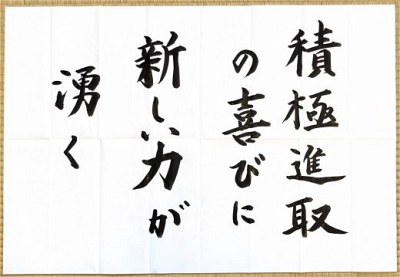 積極進取
の喜びに
新しい力が
湧く